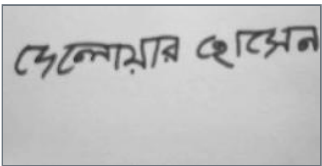 দেলোয়ার হোসেন